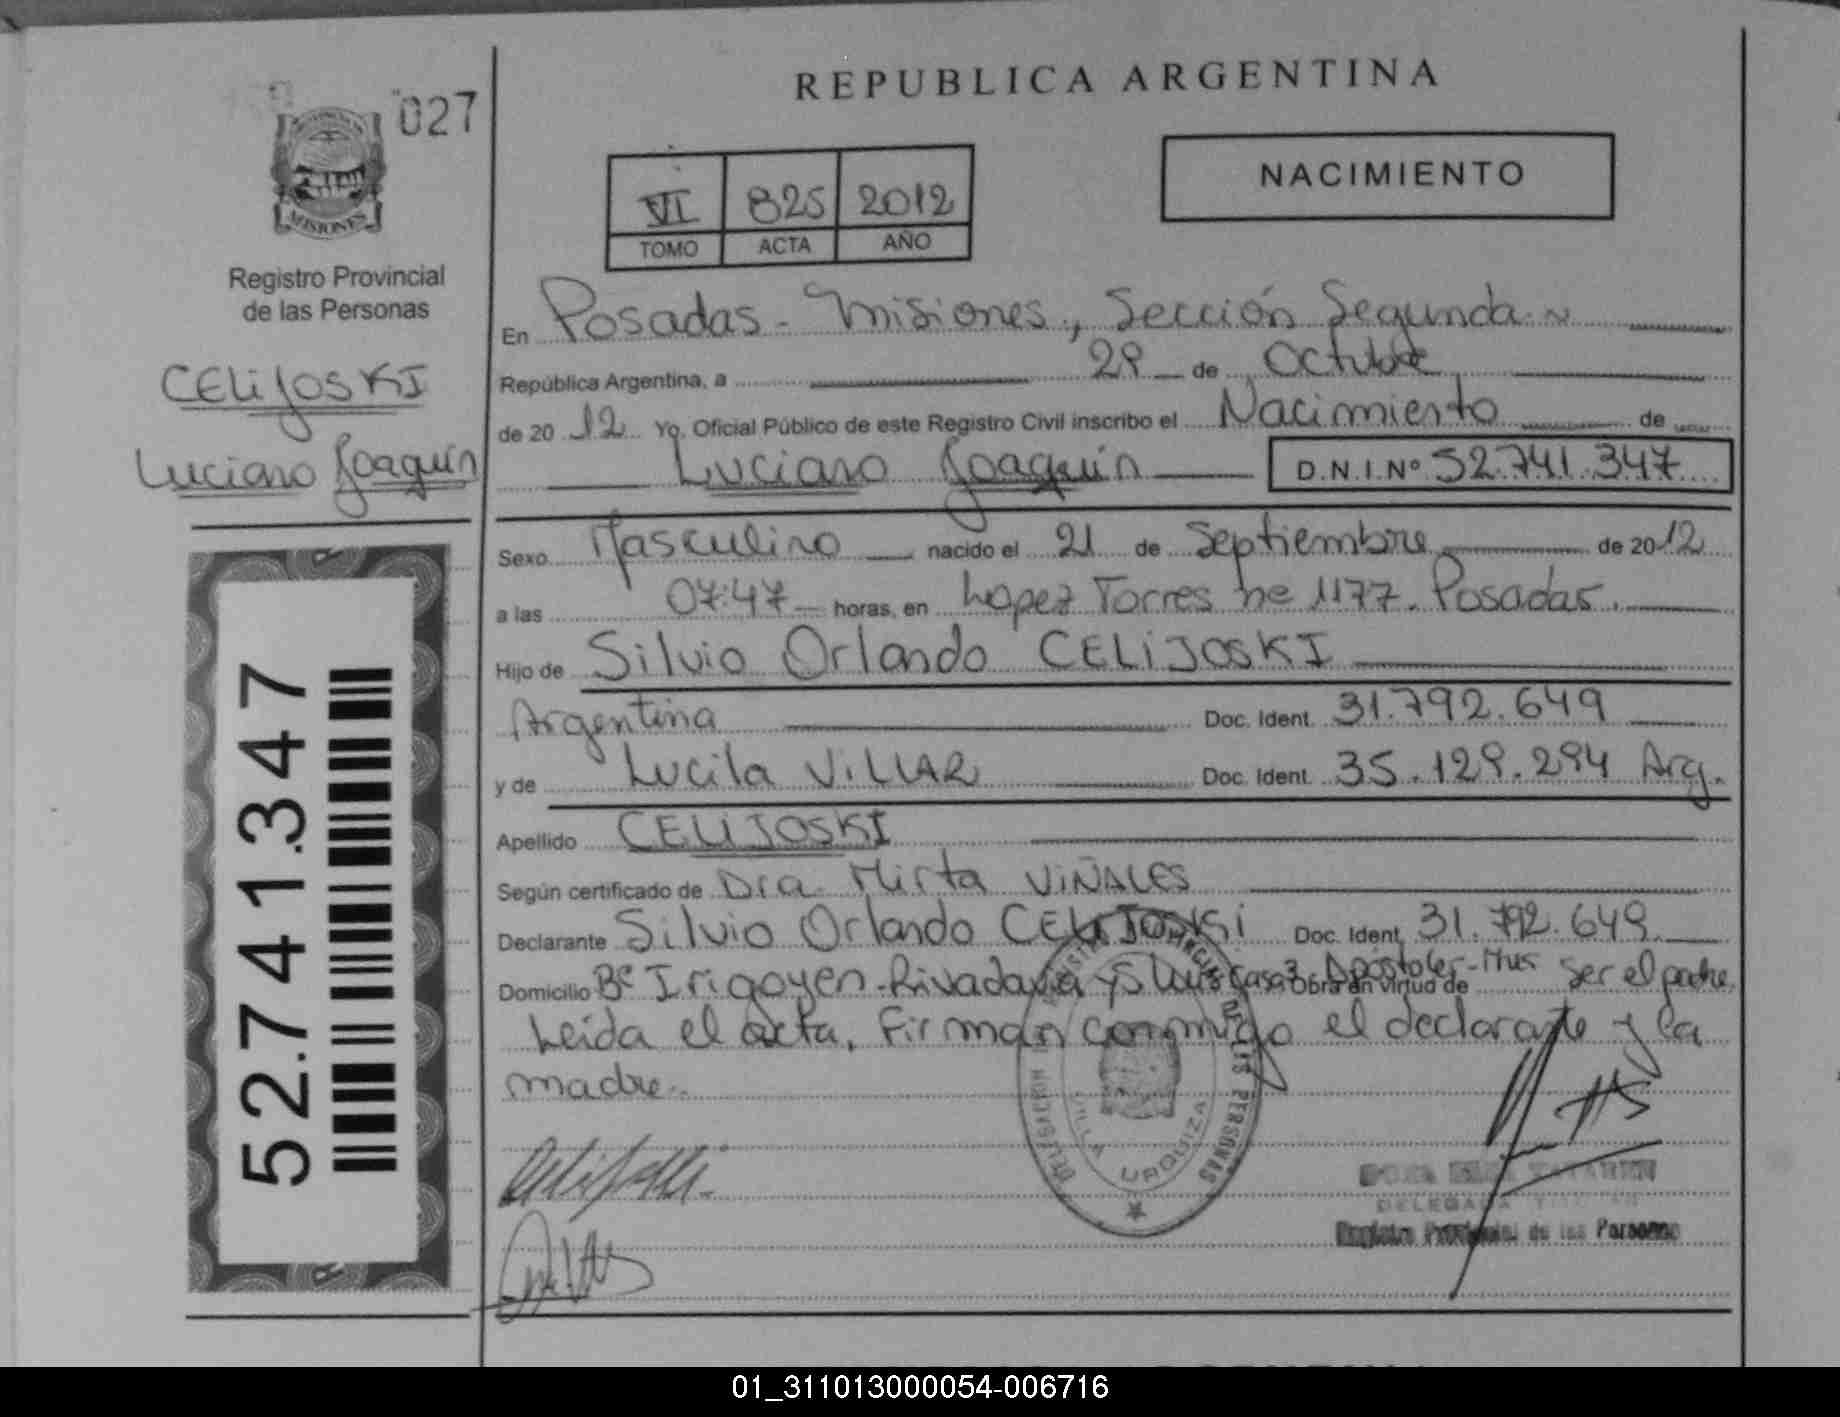 027
MISIONES
Registro Provincial
de las Personas
CELIJOSKI
Luciano Joaquín
52.741.347
REPUBLICA ARGENTINA
VI 825 2012
TOMO ACTA AÑO
NACIMIENTO
En Posadas - Misiones, Sección Segunda
República Argentina, a 29 de Octubre
de 2012 Yo, Oficial Público de este Registro Civil inscribo el Nacimiento de
Luciano Joaquín D.N.I.Nº 52.741.347
Sexo Masculino nacido el 21 de Septiembre de 2012
a las 07:47 horas, en Lopez Torres ne 1177. Posadas.
Hijo de Silvio Orlando CELIJOSKI
Argentina Doc. Ident. 31.792.649
y de Lucila VILLAR Doc. Ident. 35.129.294 Arg.
Apellido CELIJOSKI
Según certificado de Dra. Mirta VIÑALES
Declarante Silvio Orlando CELIJOSKI Doc. Ident. 31.792.649
Domicilio Bº Irigoyen - Rivadavia y S Luis Casa 3 Apóstoles - Mns Obra en virtud de ser el padre.
Leída el acta, Firman conmigo el declarante y la
madre.
VILLA URQUIZA
DELEGADA
Registro Provincial de las Personas
01_311013000054-006716